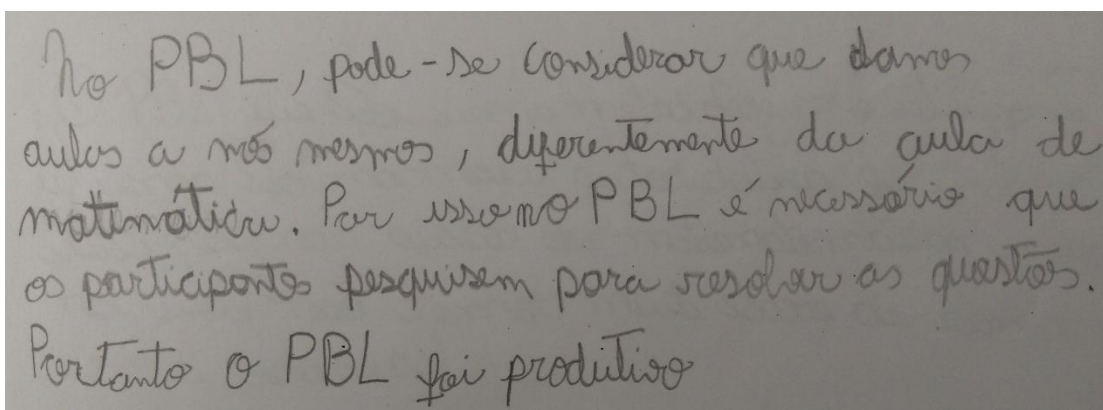 No PBL, pode-se considerar que damos
aulas a nós mesmos, diferentemente da aula de
matemática. Por isso no PBL é necessário que
os participantes pesquisem para resolver as questões.
Portanto o PBL foi produtivo